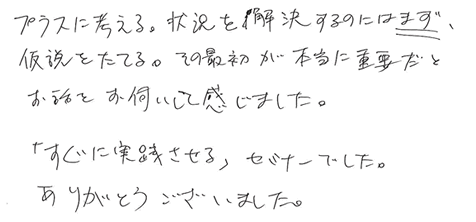 プラスに考える。状況を解決するのにはまず、
仮説をたてる。その最初が本当に重要だと
お話をお伺いして感じました。
「すぐに実践させる」セミナーでした。
ありがとうございました。